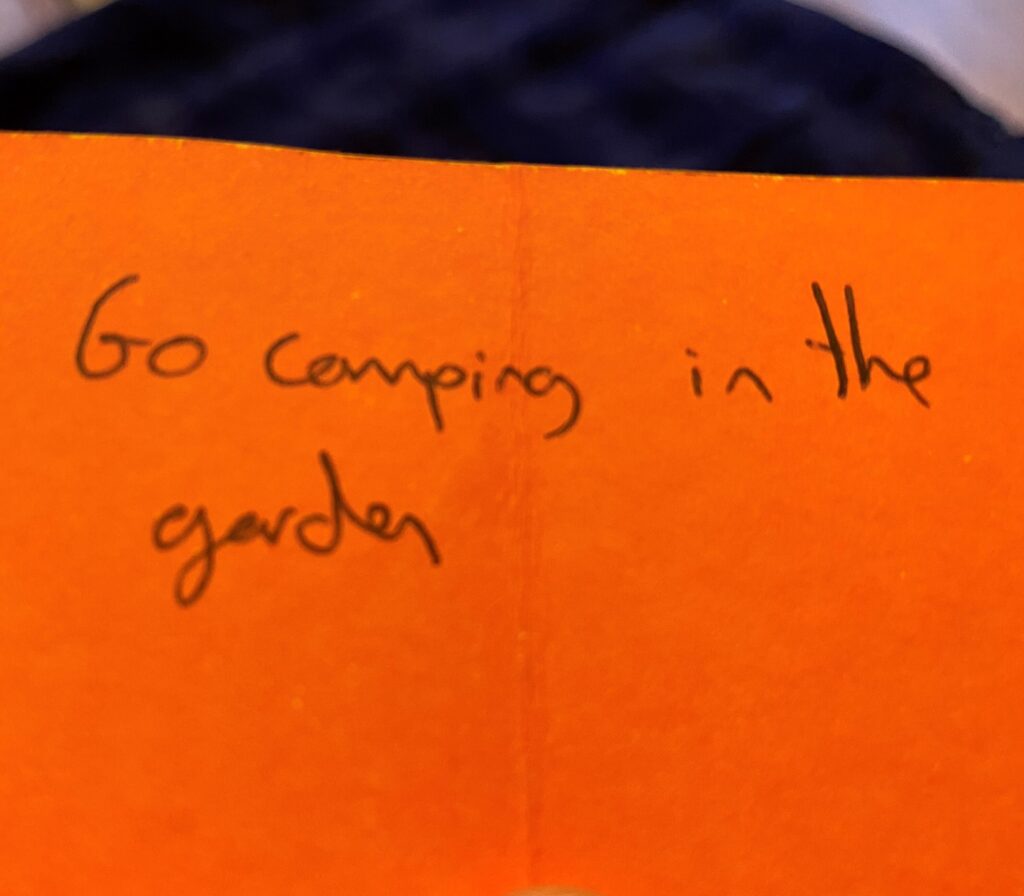 Go camping in the
garden